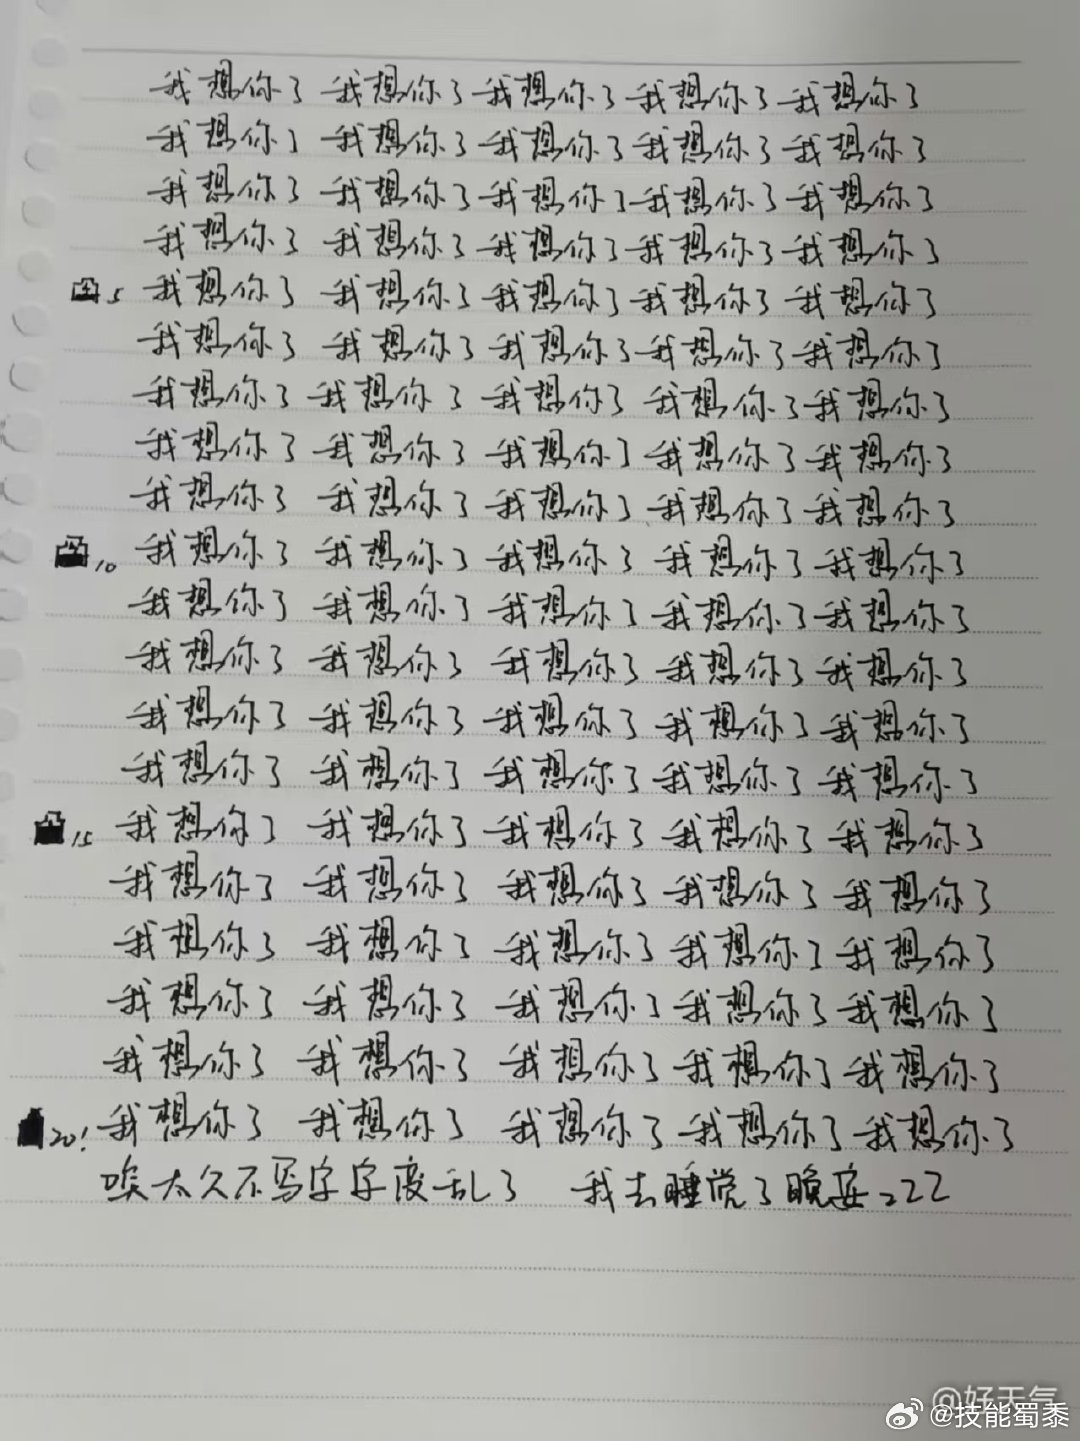 我想你了 我想你了 我想你了 我想你了 我想你了
我想你了 我想你了 我想你了 我想你了 我想你了
我想你了 我想你了 我想你了 我想你了 我想你了
我想你了 我想你了 我想你了 我想你了 我想你了
5 我想你了 我想你了 我想你了 我想你了 我想你了
我想你了 我想你了 我想你了 我想你了 我想你了
我想你了 我想你了 我想你了 我想你了 我想你了
我想你了 我想你了 我想你了 我想你了 我想你了
我想你了 我想你了 我想你了 我想你了 我想你了
10 我想你了 我想你了 我想你了 我想你了 我想你了
我想你了 我想你了 我想你了 我想你了 我想你了
我想你了 我想你了 我想你了 我想你了 我想你了
我想你了 我想你了 我想你了 我想你了 我想你了
我想你了 我想你了 我想你了 我想你了 我想你了
15 我想你了 我想你了 我想你了 我想你了 我想你了
我想你了 我想你了 我想你了 我想你了 我想你了
我想你了 我想你了 我想你了 我想你了 我想你了
我想你了 我想你了 我想你了 我想你了 我想你了
我想你了 我想你了 我想你了 我想你了 我想你了
20! 我想你了 我想你了 我想你了 我想你了 我想你了
唉太久不写字字变乱了 我去睡觉了晚安zzz
@好天气
@技能蜀黍